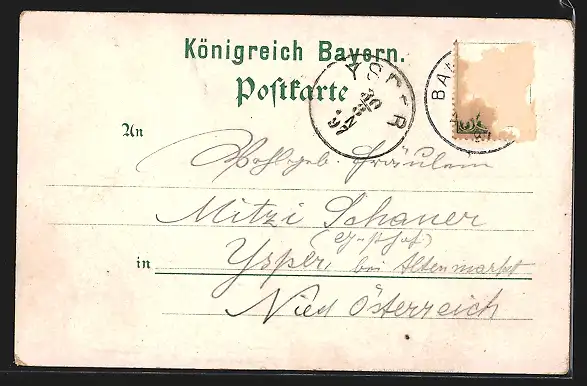 Königreich Bayern.
Postkarte
YSPER
BA
An
Wohlgeb. Fräulein
Mitzi Schauer
(Gasthof)
in Ysper, bei Altenmarkt
Nied Österreich